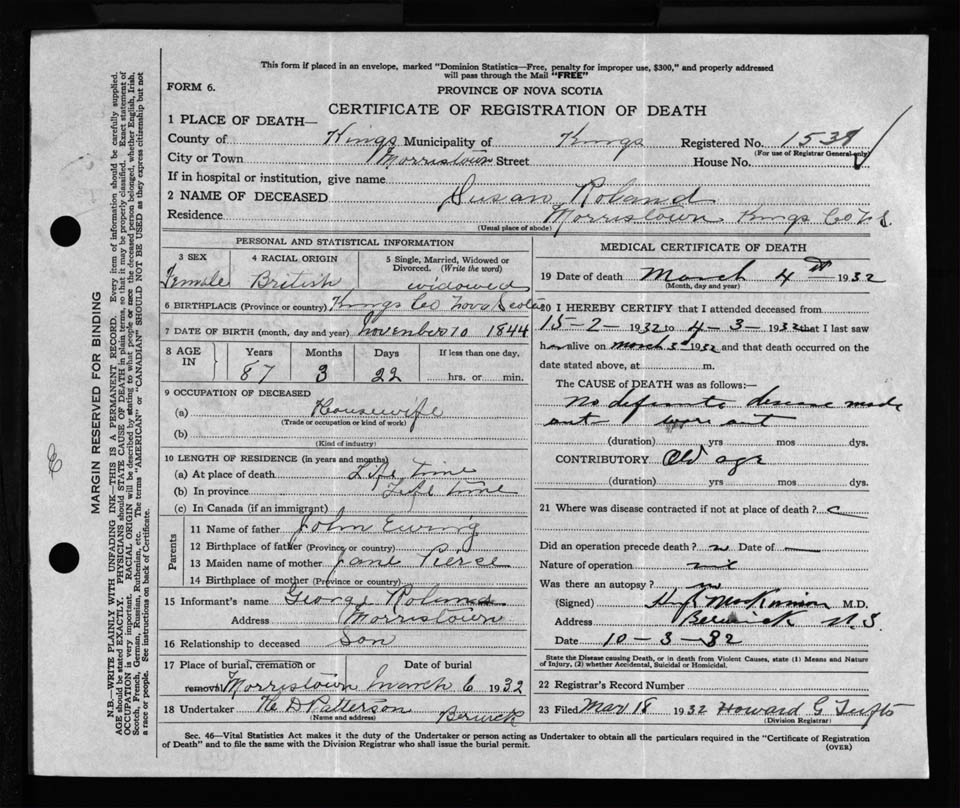 This form if placed in an envelope, marked "Dominion Statistics—Free, penalty for improper use, $300," and properly addressed
will pass through the Mail "FREE"
FORM 6.
PROVINCE OF NOVA SCOTIA
CERTIFICATE OF REGISTRATION OF DEATH
1 PLACE OF DEATH—
County of Kings Municipality of Kings Registered No. 1539
(For use of Registrar General only)
City or Town Morristown Street House No.
If in hospital or institution, give name
2 NAME OF DECEASED Susan Roland
Residence Morristown Kings Co N.S.
(Usual place of abode)
PERSONAL AND STATISTICAL INFORMATION
3 SEX 4 RACIAL ORIGIN 5 Single, Married, Widowed or
Divorced. (Write the word)
Female British widowed
6 BIRTHPLACE (Province or country) Kings Co Nova Scotia
7 DATE OF BIRTH (month, day and year) November 10 1844
8 AGE IN Years Months Days If less than one day,
87 3 22 hrs. or min.
9 OCCUPATION OF DECEASED
(a) Housewife
(Trade or occupation or kind of work)
(b)
(Kind of industry)
10 LENGTH OF RESIDENCE (in years and months)
(a) At place of death Life time
(b) In province Life time
(c) In Canada (if an immigrant)
Parents
11 Name of father John Ewing
12 Birthplace of father (Province or country)
13 Maiden name of mother Jane Pierce
14 Birthplace of mother (Province or country)
15 Informant's name George Roland
Address Morristown
16 Relationship to deceased Son
17 Place of burial, cremation or Date of burial
removal Morristown March 6 1932
18 Undertaker H D Patterson Berwick
(Name and address)
MEDICAL CERTIFICATE OF DEATH
19 Date of death March 4th 1932
(Month, day and year)
20 I HEREBY CERTIFY that I attended deceased from
15-2- 1932 to 4-3- 1932 that I last saw
h alive on March 3rd 1932 and that death occurred on the
date stated above, at m.
The CAUSE of DEATH was as follows:—
No definite disease made
out worn out
(duration) yrs mos dys.
CONTRIBUTORY Old age
(duration) yrs mos dys.
21 Where was disease contracted if not at place of death?
Did an operation precede death? Date of
Nature of operation
Was there an autopsy? no
(Signed) M.D.
Address Berwick N.S.
Date 10-3-32
State the Disease causing Death, or in death from Violent Causes, state (1) Means and Nature
of Injury, (2) whether Accidental, Suicidal or Homicidal.
22 Registrar's Record Number
23 Filed Mar 18 1932 Howard G Tufts
(Division Registrar)
Sec. 46—Vital Statistics Act makes it the duty of the Undertaker or person acting as Undertaker to obtain all the particulars required in the "Certificate of Registration
of Death" and to file the same with the Division Registrar who shall issue the burial permit.
(OVER)
MARGIN RESERVED FOR BINDING
N.B.—WRITE PLAINLY WITH UNFADING INK—THIS IS A PERMANENT RECORD. Every item of information should be carefully supplied.
AGE should be stated EXACTLY. PHYSICIANS should STATE CAUSE OF DEATH in plain terms, so that it may be properly classified. Exact statement of
OCCUPATION is very important. RACIAL ORIGIN will be described by stating to what people or race the deceased person belonged, whether English, Irish,
Scotch, French, German, Russian, Ruthenian, etc. The terms "AMERICAN" or "CANADIAN" SHOULD NOT BE USED as they express citizenship but not
a race or people. See instructions on back of Certificate.